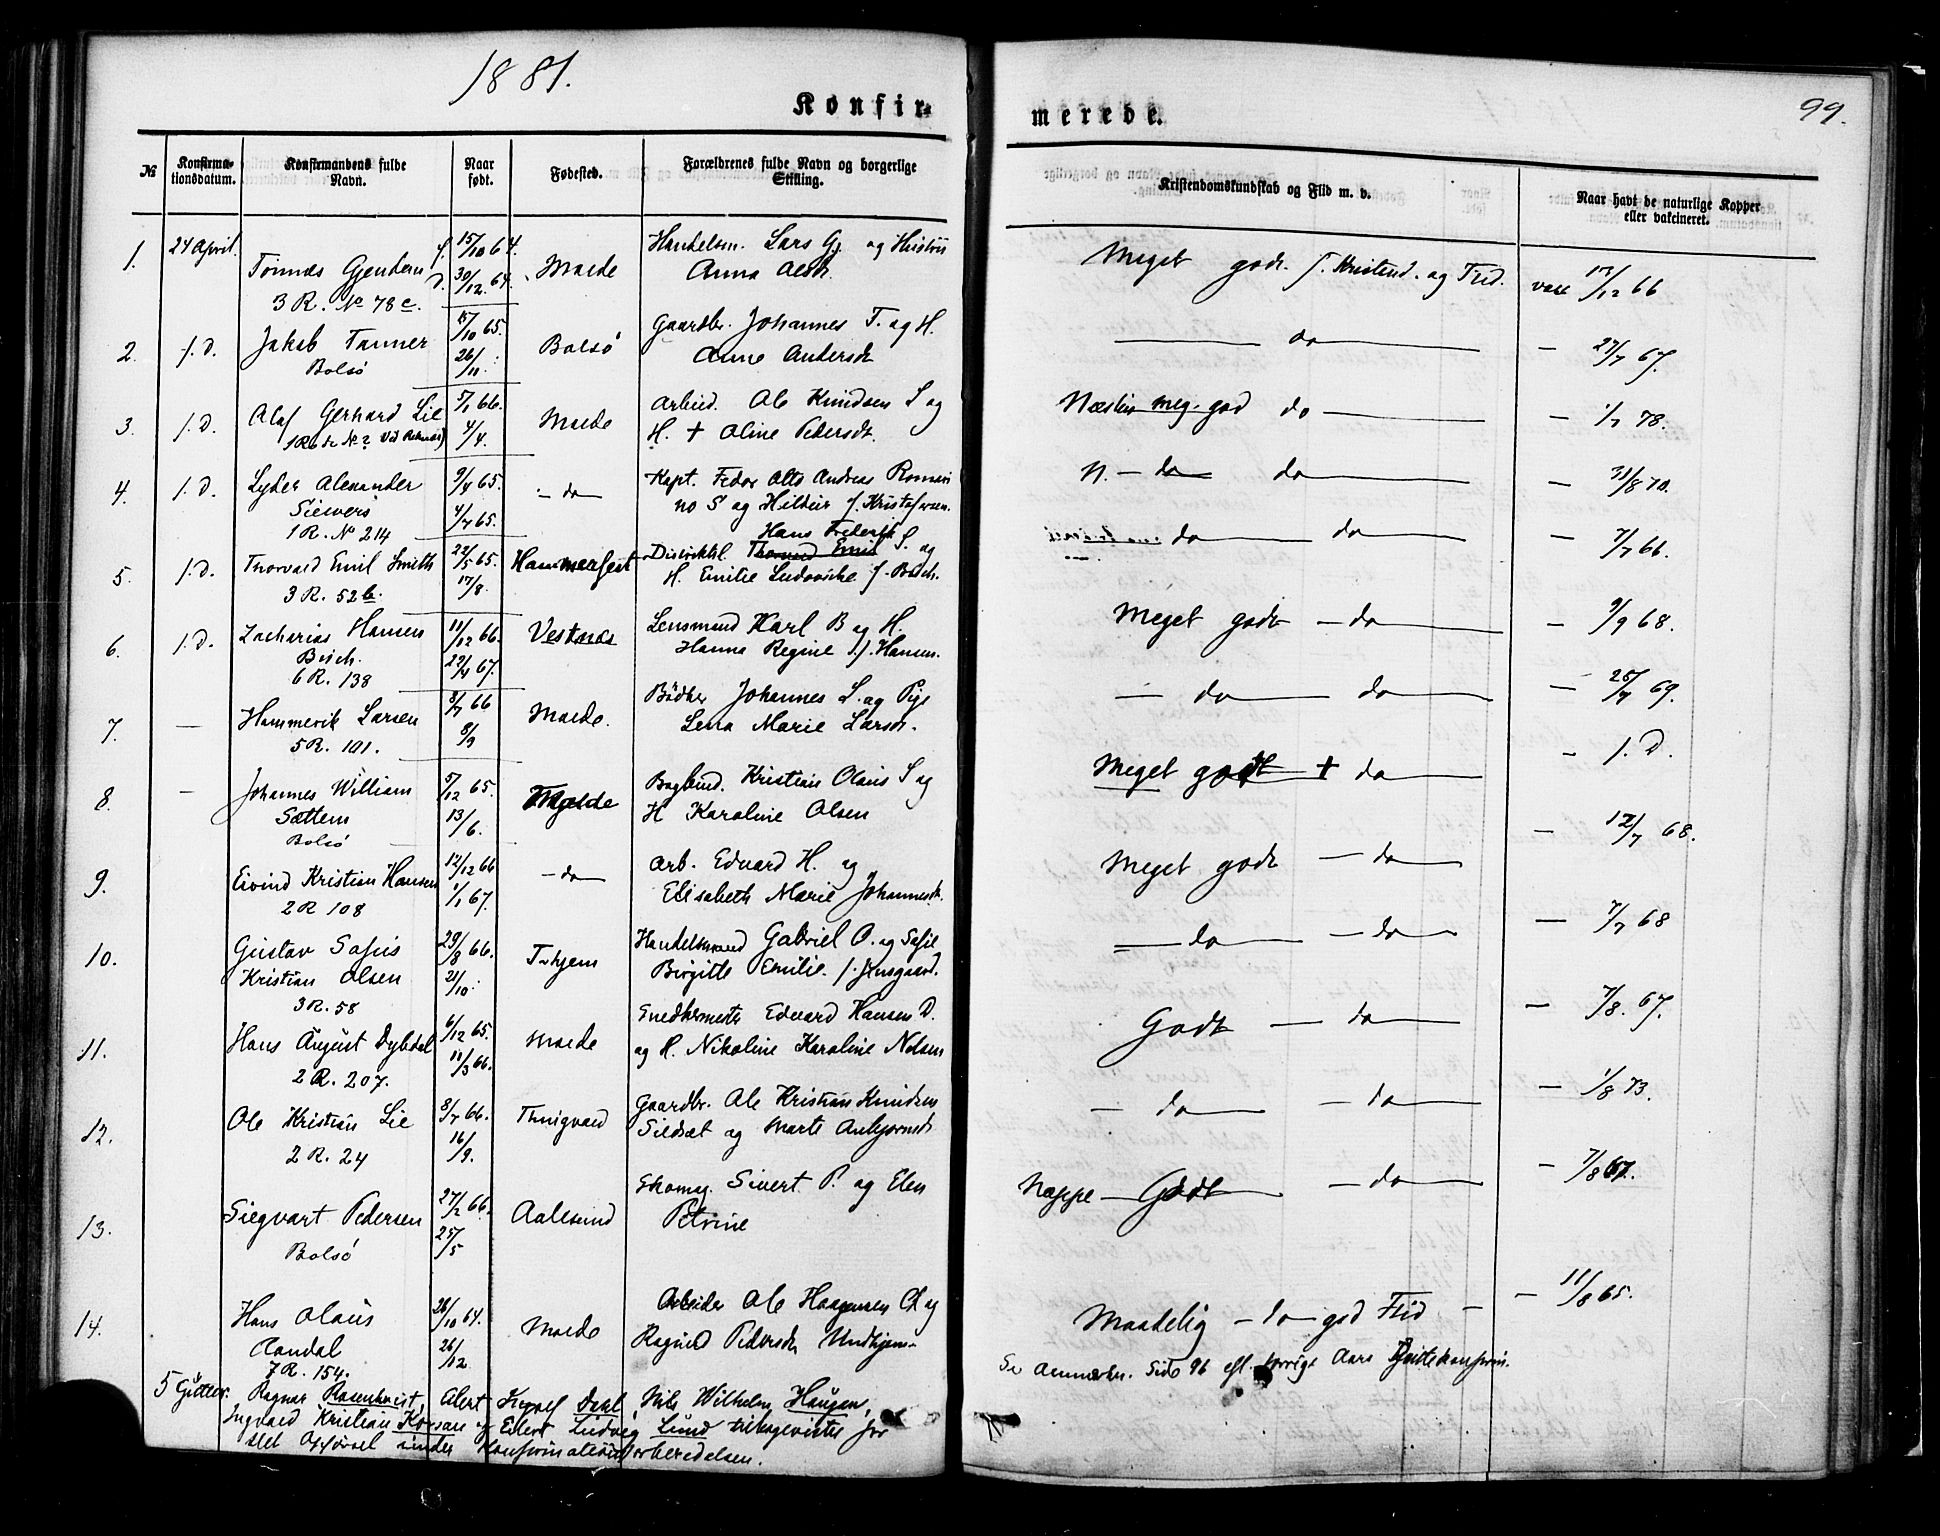 1881.
Konfir-
merede.
99.
№
Konfirma-
tionsdatum.
Konfirmandens fulde
Navn.
Naar
født.
Fødested.
Forældrenes fulde Navn og borgerlige
Stilling.
Kristendomskundskab og Flid m. v.
Naar havt de naturlige Kopper
eller vakcineret.
1. 24 April. Tønnes Gjendem f. 15/10 64. Molde Handelsm. Lars Gj. og Hustru
d. 30/12 64. Anna
3 R. No 78 c. Meget godt f. Kristend. og Flid. vacc 17/12 66
2. f. D. Jakob Tanner 15/10 65. Bolsö Gaardbr. Johannes T. og H.
Bolsö 26/11. Anne Andersdt — do — — 27/7 67.
3. f. D. Olaf Gerhard Lie 5/1 66. Molde Arbeid. Ole Knudsen L og
4/4. H. + Oline Pedersdt. Næsten meg. god do — — 1/7 78.
4. f. D. Lyder Alexander 9/4 65. — do — Kapt. Fedor Otto Andreas Romeri
Sievers 4/7 65. no S og Hildur f. Kristofersen.
1 R. No 214 N. — do — do — — 31/8 70.
Hans Frederik
5. f. D. Thorvald Emil Smith 22/5 65. Hammerfest Distriktsl. Thorvald Emil S. og
3 R. 52 b. 17/8. H. Emilie Ludovicke f. Buch. — do — do — — 7/7 66.
6. f. D. Zacharias Hansen 11/12 66. Vestnæs Lensmand Karl B og H.
Buch. 29/4 67. Hanna Regine f. Hansen.
6 R. 138 Meget godt — do — — 9/9 68.
7. — Hammerik Larsen 8/7 66 Molde. Bödker Johannes L. og Pige
5 R. 101. 9/9 Lena Marie Larsdt. — do — do — — 25/7 69.
8. — Johannes William 5/12 65. Molde Bogbind. Kristian Olaus S og
Sættem 13/6. H Karoline Olsen
Bolsö Meget godt + do — — f. D.
9. Eivind Kristian Hansen 12/12 66 — do — Arb. Edvard H. og
2 R 108 1/1 67. Elisabeth Marie Johannesdt. Meget godt — do — — 12/7 68.
10. Gustav Sofus 29/8 66. Handelsmand Gabriel O. og Sofie
Kristian Olsen 21/10. Birgitte Emilie
3 R. 58 — do — — do — — 7/7 68
11. Hans August Dybdal 6/12 65. Molde Snedkermester Edvard Hansen D.
2 R. 207. 11/3 66. og H. Nikoline Karoline Nelsen Godt — do — — 7/8. 67.
12. Ole Kristian Lie 8/7 66. Gaardbr. Ole Kristian Knudsen
2 R. 24 16/9. og Marte — do — — do — — 1/8 73.
13. Siegvart Pedersen 27/2 66. Aalesund Skomag. Sivert P. og Elen
Bolsö 25/5 Petrine Neppe — Godt — do — — 7/8 67.
14. Hans Olaus 26/10 64. Molde Arbeider Ole Haagensen og
26/12 Ragnild Pedersdt
7 R. 154. Maadelig — do — god Flid — — 11/8 65.
Se Anmærkn. Side 96 forrige Aars
5 Gutter. Ragnar Rosenkvist, Dahl, Nils Wilhelm Haugen,
Ingvald Kristian og Eilert Ludvig Lund tilbagevistes for
slet Opførsel under Konfirmationsforberedelsen.